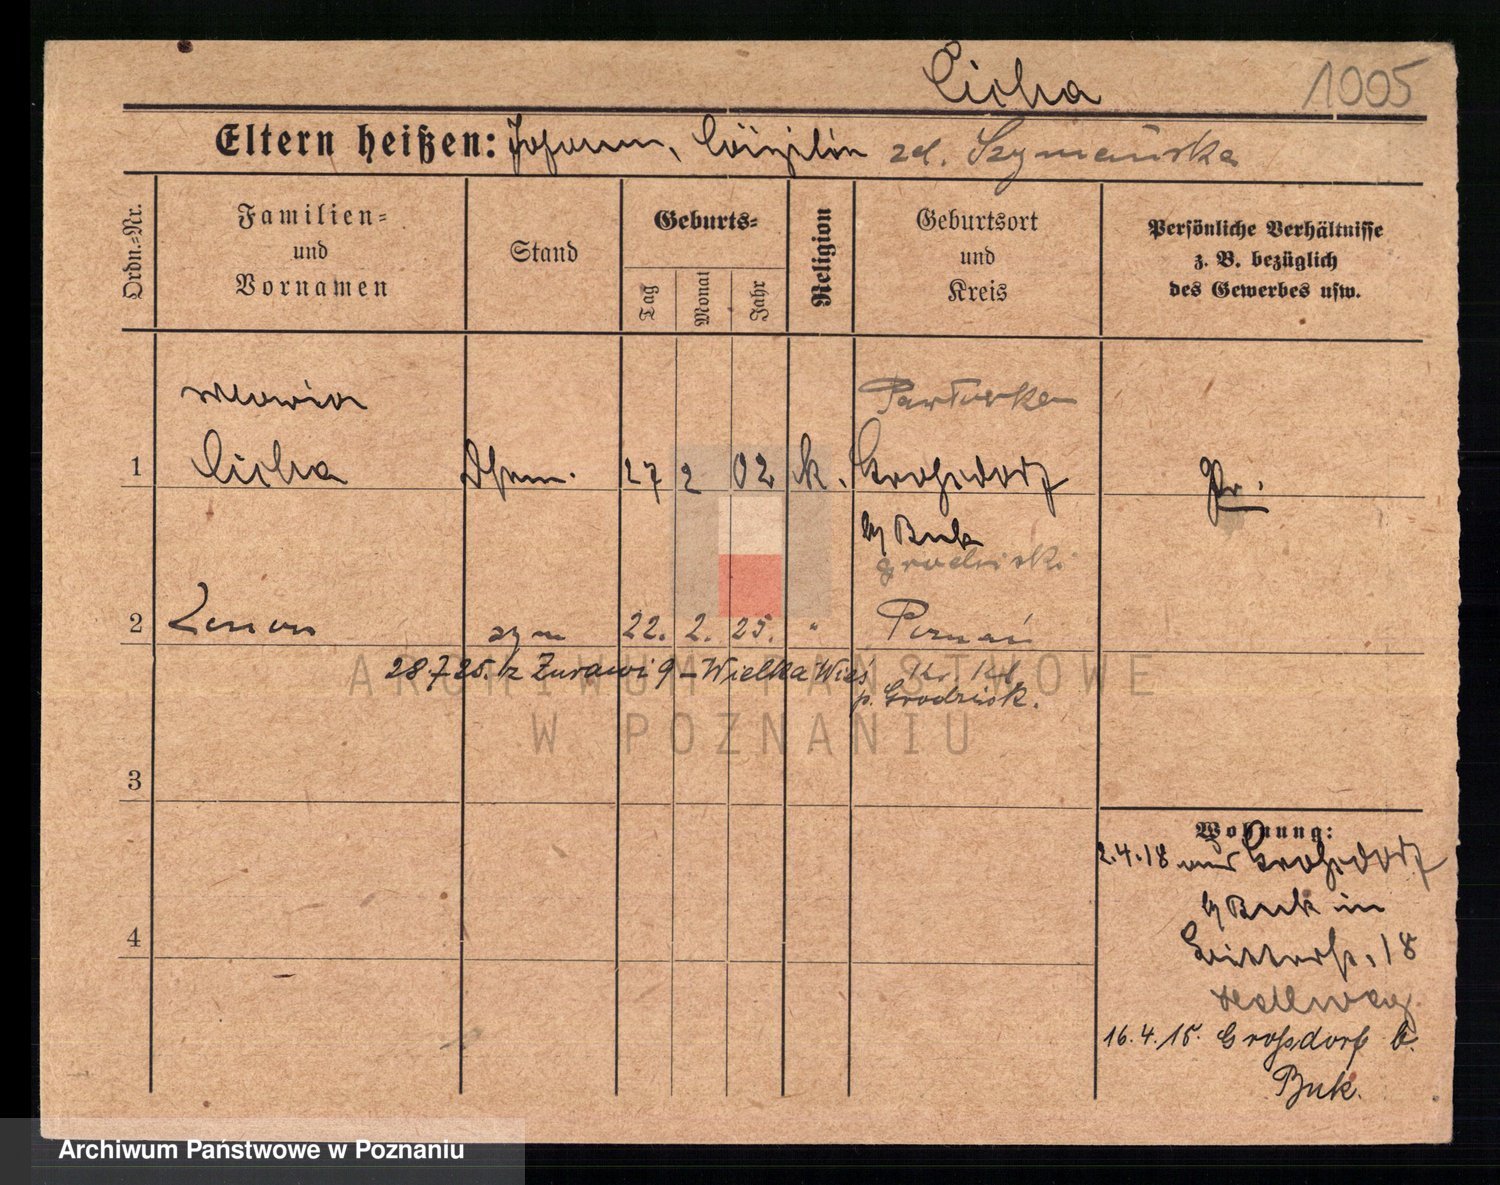 Cicha 1005
Eltern heißen: Johann, Cäzilia zd. Szymańska
Ordn.=Nr.
Familien=
und
Vornamen
Stand
Geburts=
Tag
Monat
Jahr
Religion
Geburtsort
und
Kreis
Persönliche Verhältnisse
z. B. bezüglich
des Gewerbes usw.
Maria
1 Cicha 27 2 02 k. Großdorf Pr.
b/ Buk
grodziski
2 Zenon syn 22. 2. 25. " Poznań
28.7.25. z Żurawi 9 – Wielka Wieś
p. Grodzisk.
3
4
Wohnung:
2.4.18 aus Großdorf
b/ Buk in
18
16.4.18. Großdorf b.
Buk.
ARCHIWUM PAŃSTWOWE
W POZNANIU
Archiwum Państwowe w Poznaniu